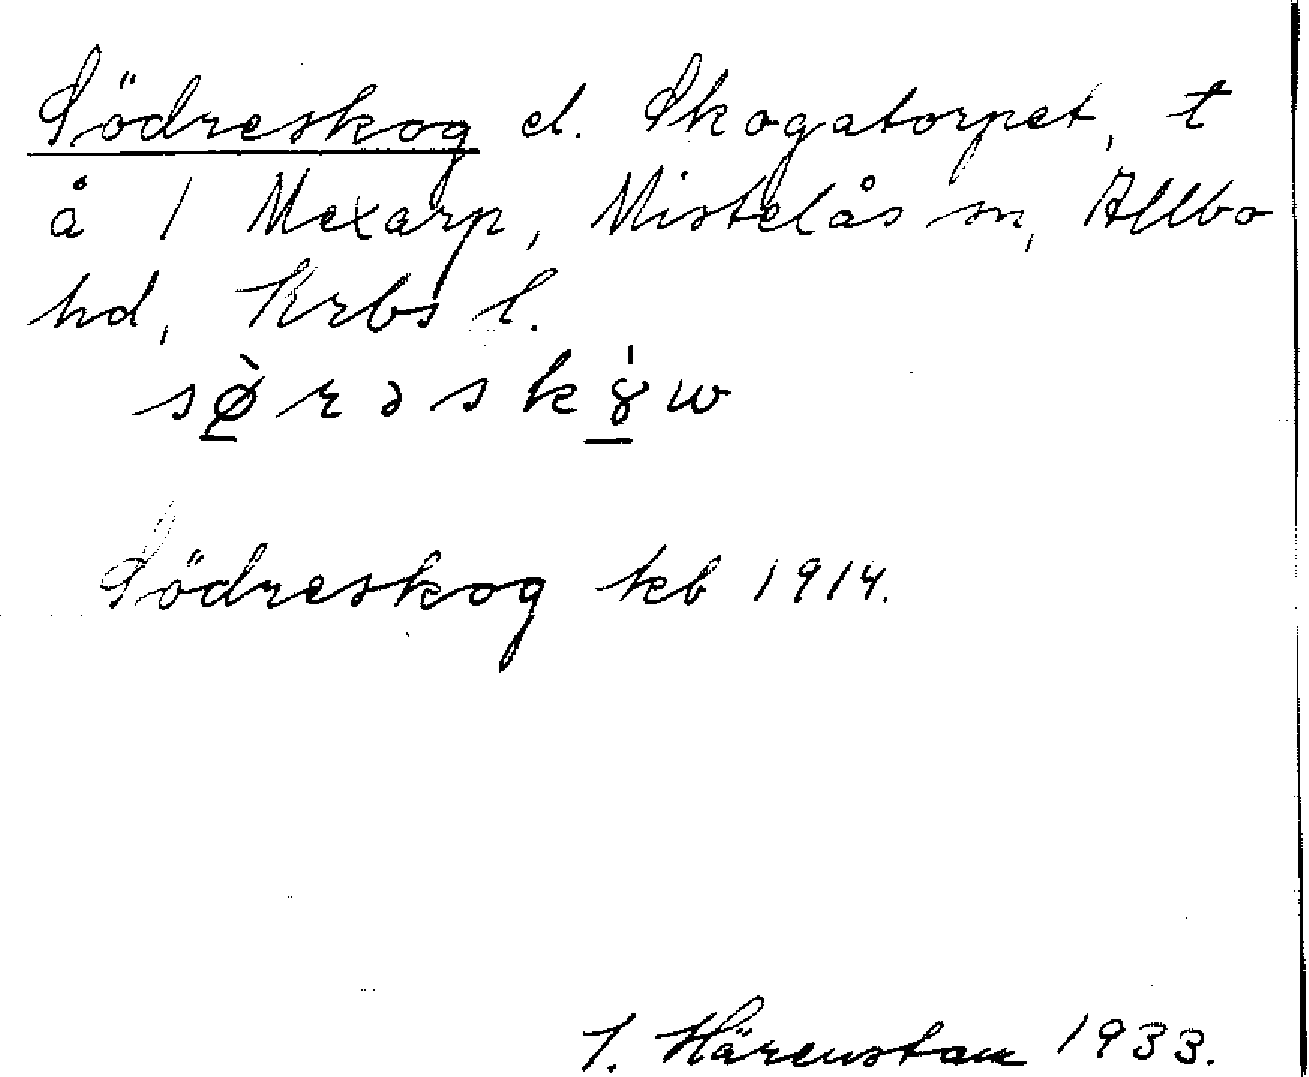 Södreskog el. Skogatorpet, t
å 1 Mexarp, Mistelås sn, Allbo
hd, Krbs l.
sø̀rəskȣ́w
Södreskog kb 1914.
J. Härenstam 1933.